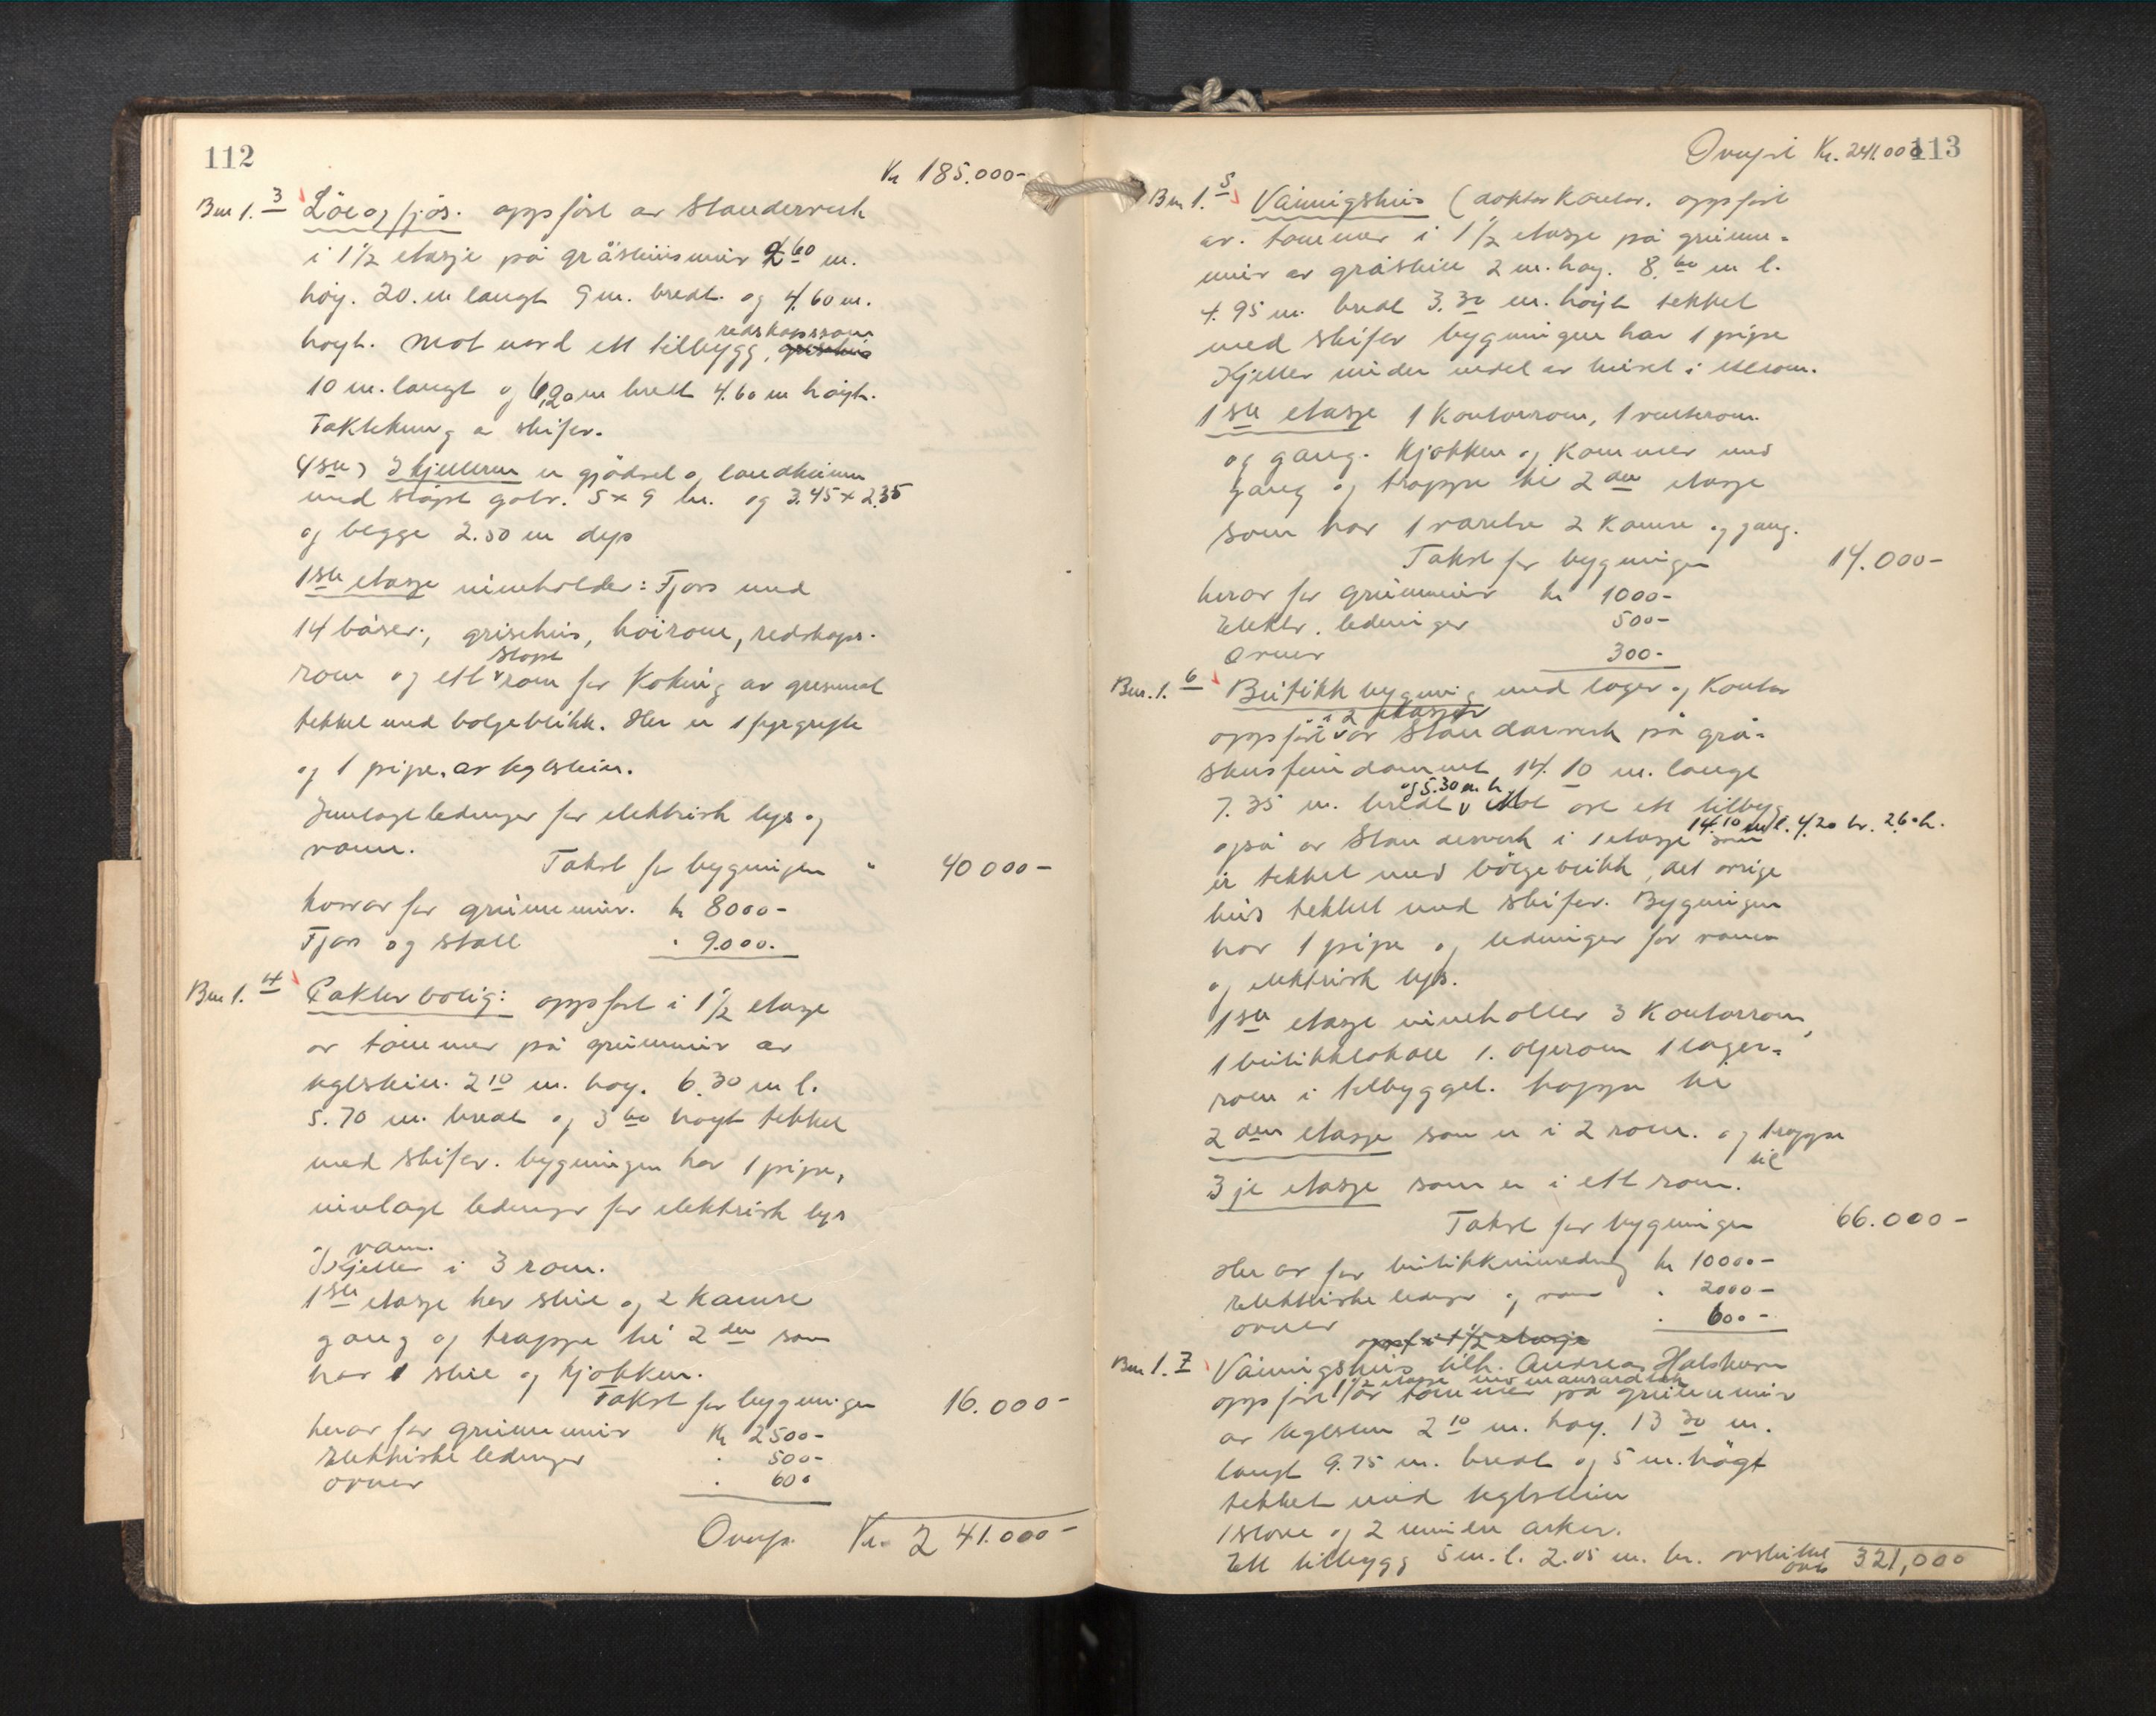 112
Kr 185.000-
Bnr 1. 3 Löe og fjös. oppfört av Standerverk
i 1½ etasje på gråsteinsmur 2 60 m.
höy. 20. m langt 9 m. bredt. og 4.60 m.
höyt. Mot nord ett tilbygg, redskapsrom grisehus
10 m. langt og 6,20 m bredt 4.60 m höyt.
Taktekning a skifer.
I kjelleren er gjödsel og landkum
med stöpt golv. 5 x 9 br. og 3.45 x 2.35
og begge 2.50 m dyp
1ste etasje inneholder: Fjös med
14 båser, grisehus, höirom, redskaps-
rom og ett stöpt rom for Koking av grismat
tekket med bölgeblikk. Her er 1 fyrgryte
og 1 pipe. av teglstein.
Innlagt ledninger for elektrisk lys og
vann.
Takst for bygningen " 40 000-
hvorav for grunnmur. kr 8000-
Fjös og stall " 9.000.
Bnr 1. 4 Fakterbolig: oppfört i 1½ etasje
av tömmer på grunnmur av
teglstein. 2 10 m. höy. 6.30 m l.
5.70 m. bredt og 3 60 höyt tekket
med skifer. bygningen har 1 pipe,
innlagt ledninger for elektrisk lys
og vann.
Kjeller i 3 rom.
1ste etasje har stue og 2 kamre
gang og trappe til 2den som
har 1 stue og kjökken.
Takst for bygningen 16.000-
herav for grunnmur Kr 2500-
Elektriske ledninger " 500-
ovner " 600
Overf. Kr. 241.000-
113
Overfört Kr. 241.000
Bnr 1. 5 Våningshus (doktorkontor. oppfört
av. tömmer i 1½ etasje på grunn-
mur av gråstein 2 m. höy. 8.60 m l.
4.95 m. bredt 3.30 m. höyt tekket
med skifer bygningen har 1 pipe
Kjeller under endel av huset i ett rom.
1ste etasje 1 Kontorrom, 1 venterom.
og gang. Kjökken og Kammer med
gang og trappe til 2den etasje
som har 1 værelse 2 Kamre og gang.
Takst for bygningen 14.000-
herav for grunnmur kr 1000-
Elektr. ledninger 500-
Ovner 300-
Bnr. 1. 6 Butikkbygning med lager og Kontor
oppfört i 2 etasjer av Standarverk på grå-
stensfundament 14.10 m. langt
7.35 m. bredt og 5.30 m h. Mot öst ett tilbygg
også av Standerverk i 1 etasje 14.10 m l. 4.20 br. 2.60 h. som
er tekket med bölgeblikk, det övrige
hus tekket med skifer. Bygningen
har 1 pipe og ledninger for vann
og elektrisk lys.
1ste etasje inneholder 3 Kontorrom,
1 butikklokale 1. oljerom 1 lager-
rom i tilbygget. trappe til
2den etasje som er i 2 rom. og trappe
til
3je etasje som er i ett rom.
Takst for bygningen 66.000-
Her av for butikkinnredning kr 10000-
Elektriske ledninger og vann " 2000-
ovner " 600-
oppf. i 1½ etasje
Bnr 1. 7 Våningshus tilh. Andreas
oppfört 1½ etasje m/ mansardtak av tömmer på grunnmur
av teglsten 2 10 m. höy. 13 30 m.
langt 9.75 m. bredt og 5 m. högt
tekket med teglstein
1 store og 2 mindre arker.
Ett tilbygg 5 m. l. 2.05 m. br. 321,000